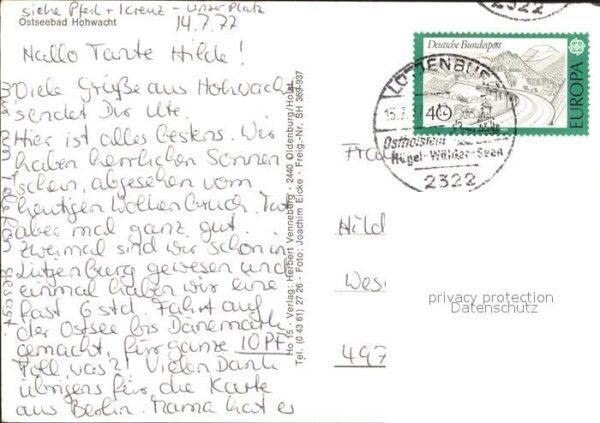 siehe Pfeil + Kreuz - unser Platz
Ostseebad Hohwacht
14.7.77
Hallo Tante Hilde!
Viele Grüße aus Hohwacht
sendet Dir Ute.
Hier ist alles bestens. Wir
haben herrlichen Sonnen
schein, abgesehen vom
heutigen Wolkenbruch. Tut
aber mal ganz gut.
Zweimal sind wir schon in
Lütjenburg gewesen und
einmal haben wir eine
fast 6 std. Fahrt auf
der Ostsee bis Dänemark
gemacht, für ganze 10 PF
Toll, was?! Vielen Dank
übrigens für die Karte
aus Berlin. Mama hat es
gesagt.
Ho 15 · Verlag: Herbert Venneberg · 2440 Oldenburg/Holst.
Tel. (0 43 61) 27 26 · Foto: Joachim Eicke · Freig.-Nr. SH 369-937
2322
Deutsche Bundespost
EUROPA
40
LÜTJENBURG
15.7.
Ostholstein
Hügel-Wälder-Seen
2322
Fra
Hild
Wes
497
privacy protection
Datenschutz